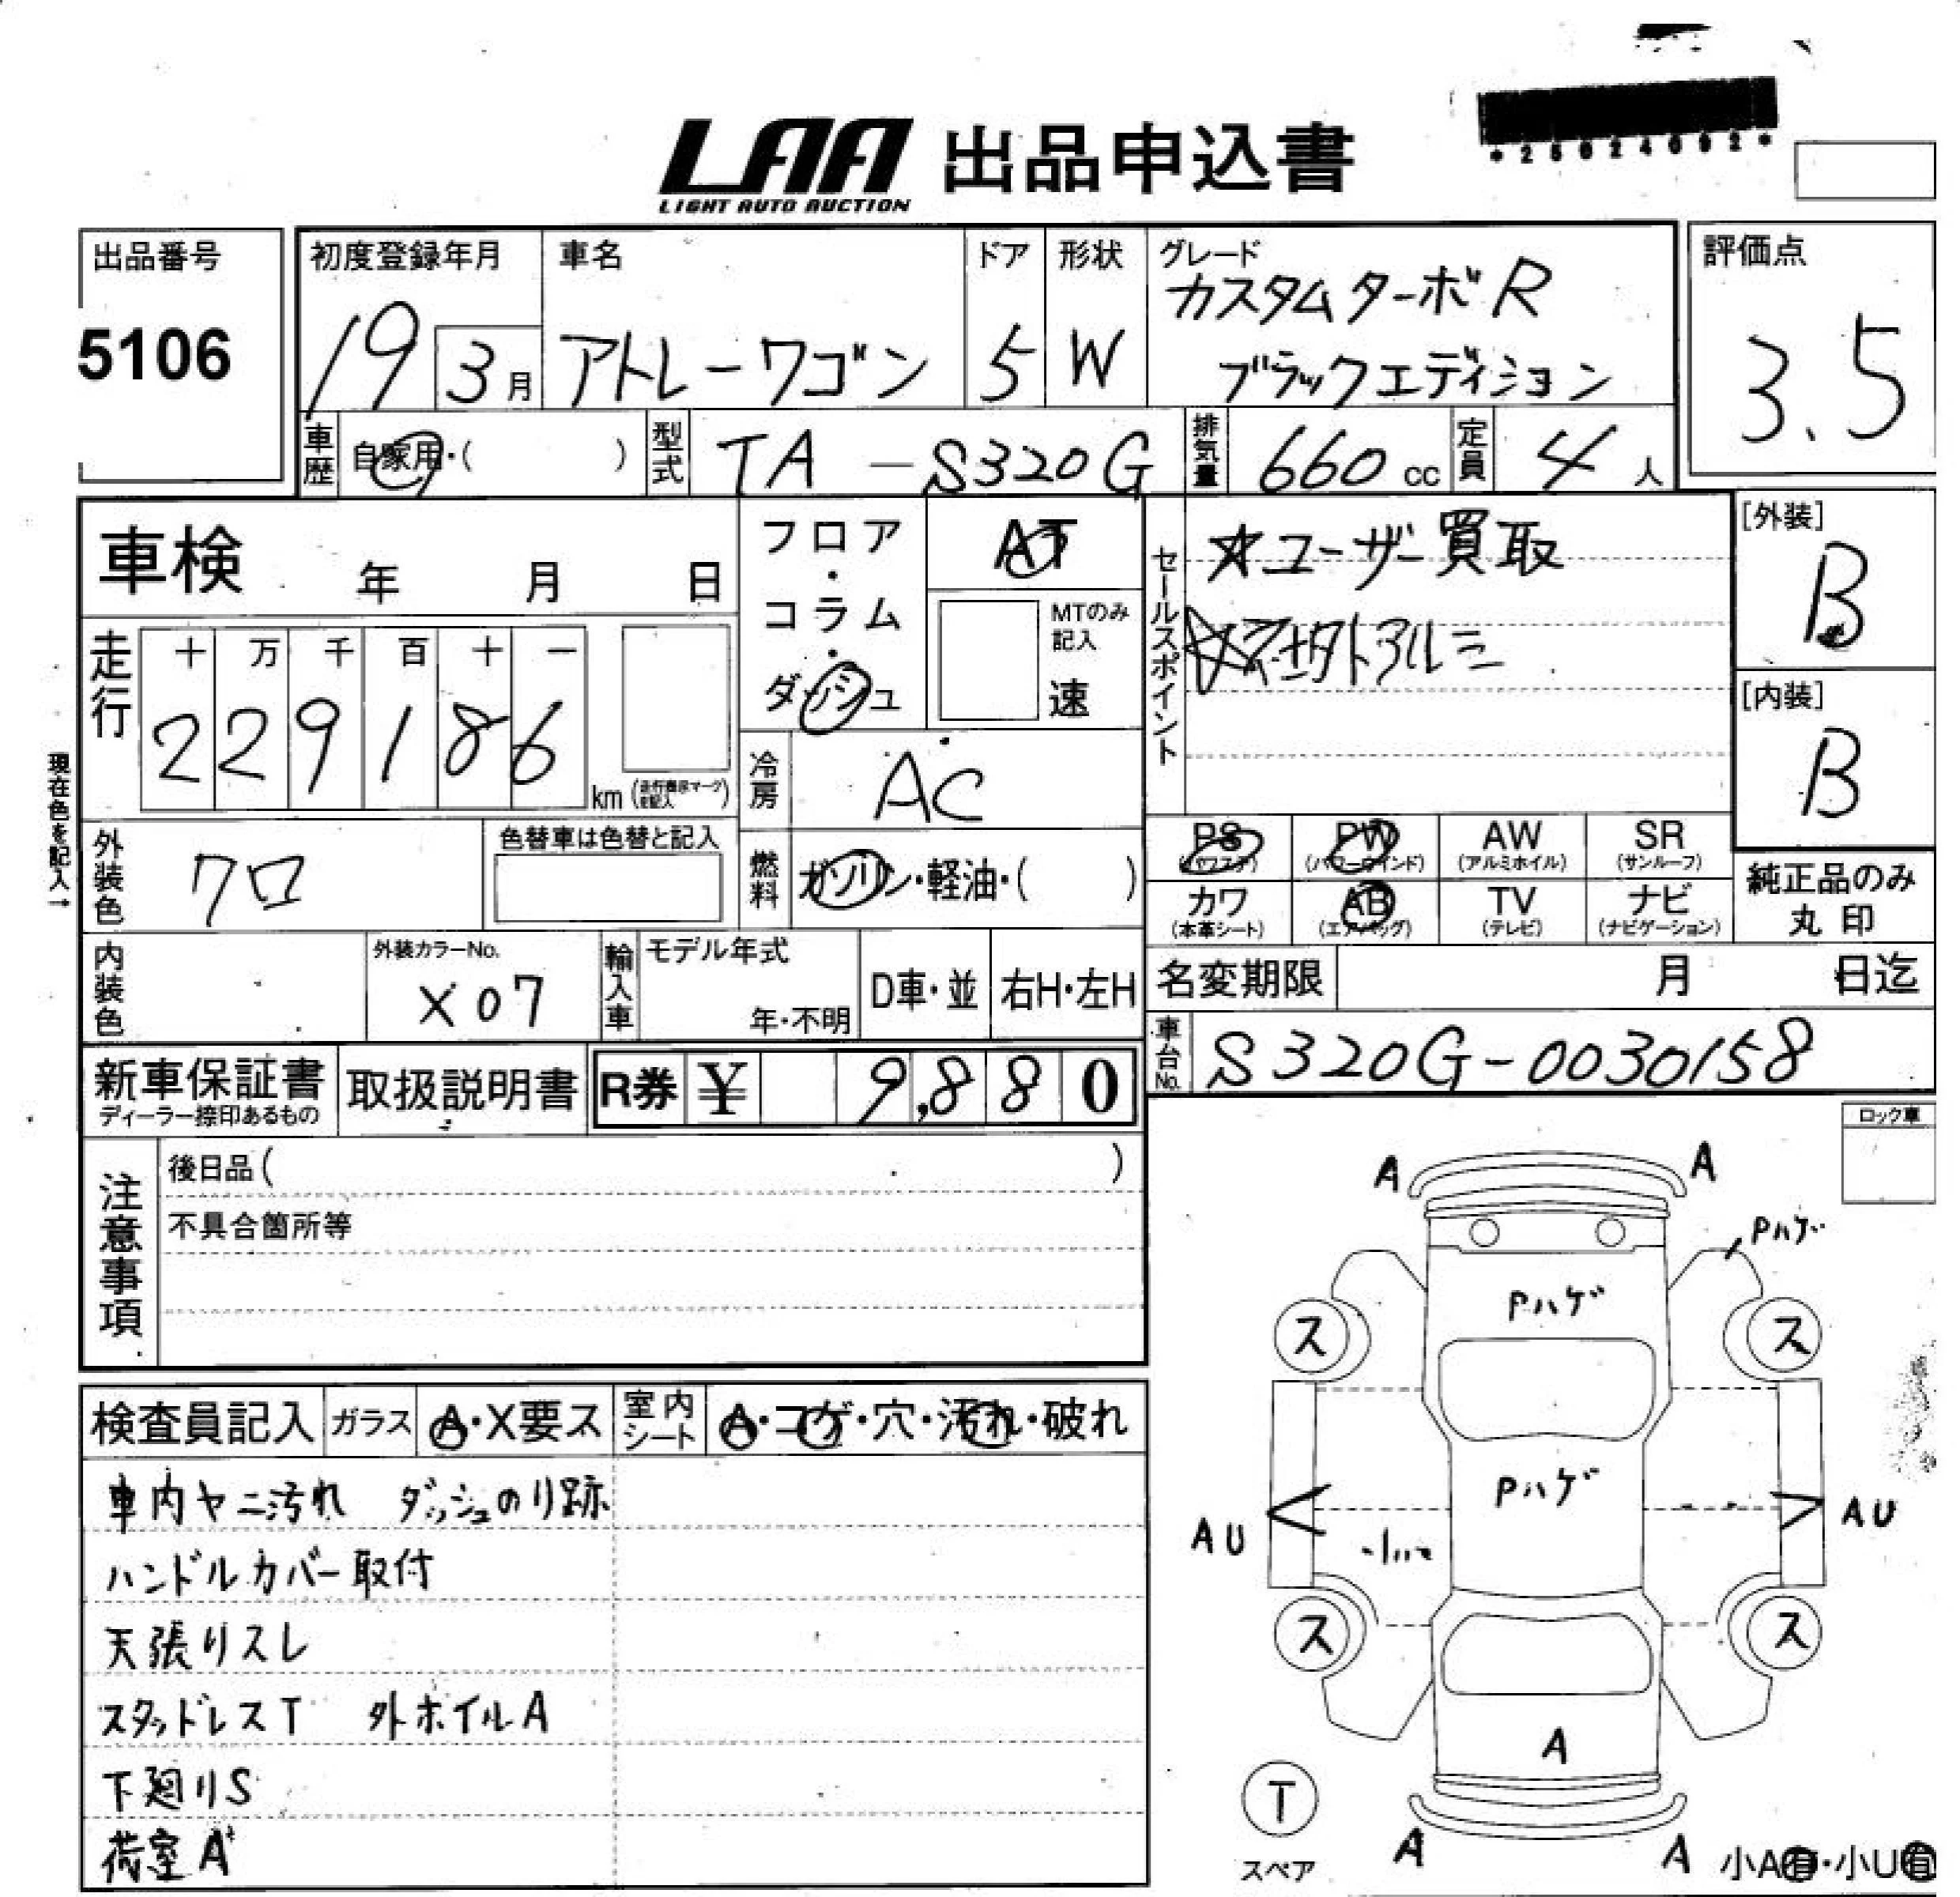 *25024092*
LAA 出品申込書
LIGHT AUTO AUCTION
出品番号
5106
初度登録年月
19 3月
車名
アトレーワゴン
ドア
5
形状
W
グレード
カスタムターボR
ブラックエディション
評価点
3.5
車歴
自家用・( )
型式
TA-S320G
排気量
660cc
定員
4人
車検 年 月 日
フロア・コラム・ダッシュ
AT
MTのみ記入
速
セールスポイント
☆ユーザー買取
アルミ
[外装]
B
[内装]
B
走行
十 万 千 百 十 一
2 2 9 1 8 6
km (走行表示マークを記入)
現在色を記入→
冷房
AC
外装色
クロ
色替車は色替と記入
燃料
ガソリン・軽油・( )
PS
(パワステ)
PW
(パワーウインド)
AW
(アルミホイル)
SR
(サンルーフ)
カワ
(本革シート)
AB
(エアバッグ)
TV
(テレビ)
ナビ
(ナビゲーション)
純正品のみ
丸印
内装色
外装カラーNo.
X07
輸入車
モデル年式
年・不明
D車・並
右H・左H
名変期限 月 日迄
車台No.
S320G-0030158
新車保証書
ディーラー捺印あるもの
取扱説明書
R券 ¥ 9,880
注意事項
後日品( )
不具合箇所等
ロック車
A A
Pハゲ
Pハゲ
ス ス
Pハゲ
AU AU
ス ス
A
T
スペア
A A
小A有・小U有
検査員記入
ガラス
A・X要ス
室内シート
A・コゲ・穴・汚れ・破れ
車内ヤニ汚れ ダッシュのり跡
ハンドルカバー取付
天張りスレ
スタッドレスT 外ホイルA
下廻りS
荷室A²